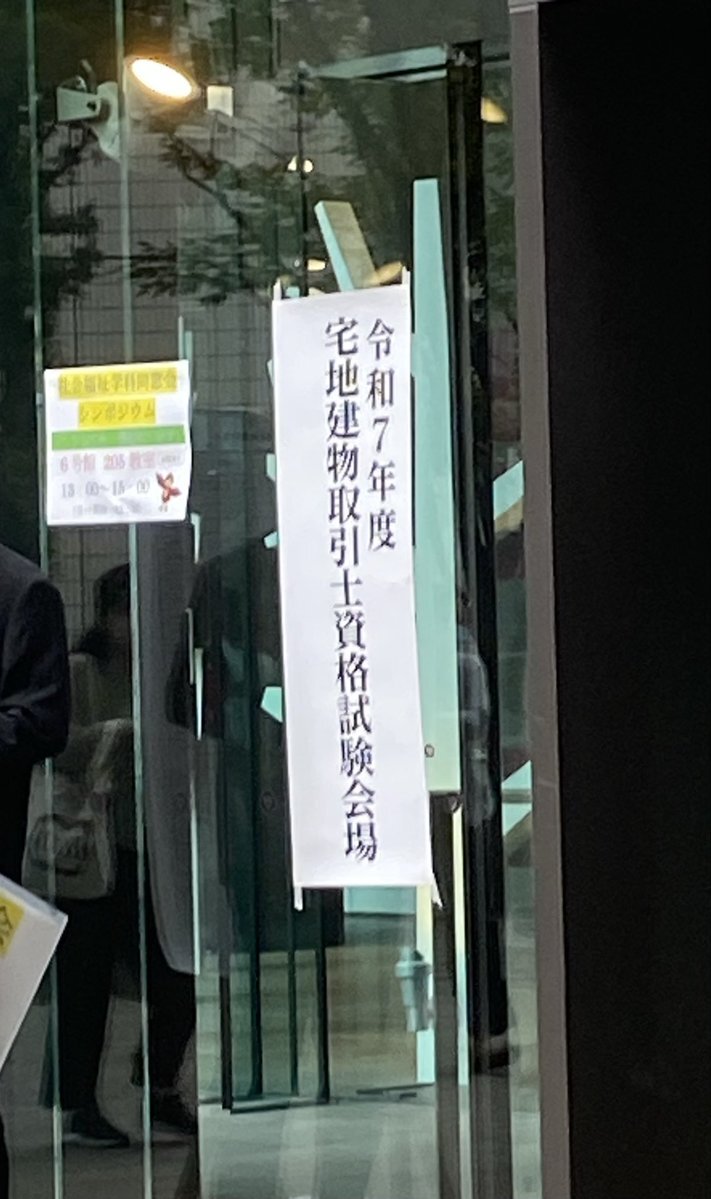 令和7年度
宅地建物取引士資格試験会場
社会福祉学科同窓会
シンポジウム
6号館 205教室
13:00~15:00